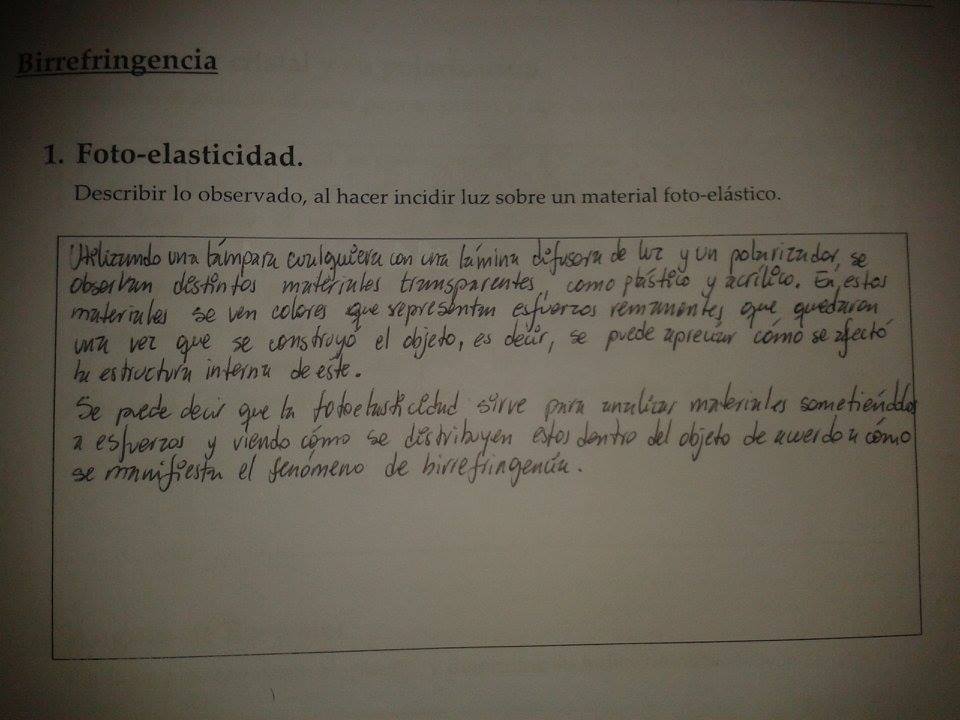 Birrefringencia
1. Foto-elasticidad.
Describir lo observado, al hacer incidir luz sobre un material foto-elástico.
Utilizando una lámpara cualquiera con una lámina difusora de luz y un polarizador, se
observan distintos materiales transparentes, como plástico y acrílico. En estos
materiales se ven colores que representan esfuerzos remanentes que quedaron
una vez que se construyó el objeto, es decir, se puede apreciar cómo se afectó
la estructura interna de éste.
Se puede decir que la fotoelasticidad sirve para analizar materiales sometiéndolos
a esfuerzos y viendo cómo se distribuyen estos dentro del objeto de acuerdo a cómo
se manifiesta el fenómeno de birrefringencia.